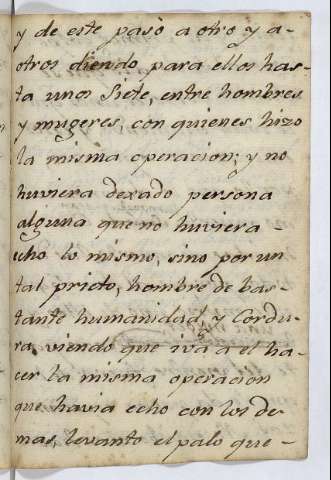 y de este pasò a otro y a-
otros diendo para ellos has-
ta unos siete, entre hombres
y mugeres, con quienes hizo
la misma operacion; y no
huviera dexado persona
alguna que no huviera
echo lo mismo, sino por un
tal prieto, hombre de bas-
tante humanidad y Cordu-
ra, viendo que iva a el ha-
cer la misma operacion
que havia echo con los de
mas, levanto el palo que-